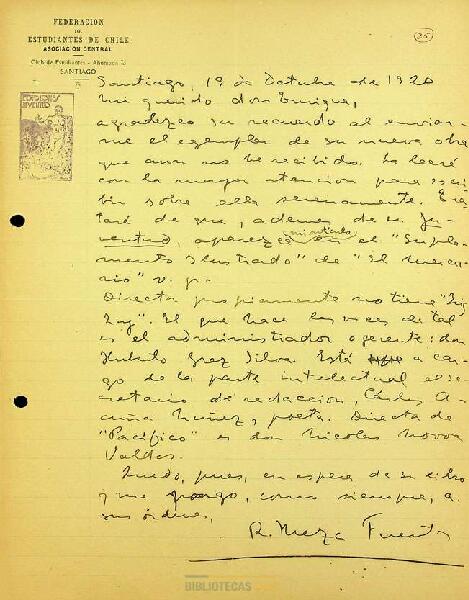 FEDERACION
DE
ESTUDIANTES DE CHILE
ASOCIACION CENTRAL
Club de Estudiantes - Ahumada 73
SANTIAGO
(25)
Santiago, 19 de Octubre de 1920
Mi querido don Enrique,
agradezco su recuerdo al enviar-
me el ejemplar de su nueva obra
que aun no he recibido. Lo leeré
con la mayor atencion para escri-
bir sobre ella serenamente. Tra-
taré de que, ademas de en Ju-
ventud, aparezca mi artículo en el "Suple-
mento Ilustrado" de "El Mercu-
rio" v. p.
Director propiamente no tiene "Zig
Zag". El que hace las veces de tal
es el administrador o gerente: don
Huberto Grez Silva. Está a car-
go de la parte intelectual el se-
cretario de redaccion, Carlos A-
cuña Nuñez, poeta. Director de
"Pacífico" es don Nicolas Novoa
Valdes.
Quedo, pues, en espera de su libro
y me pongo, como siempre, a
sus órdenes,
R. Meza Fuentes
BIBLIOTECAS